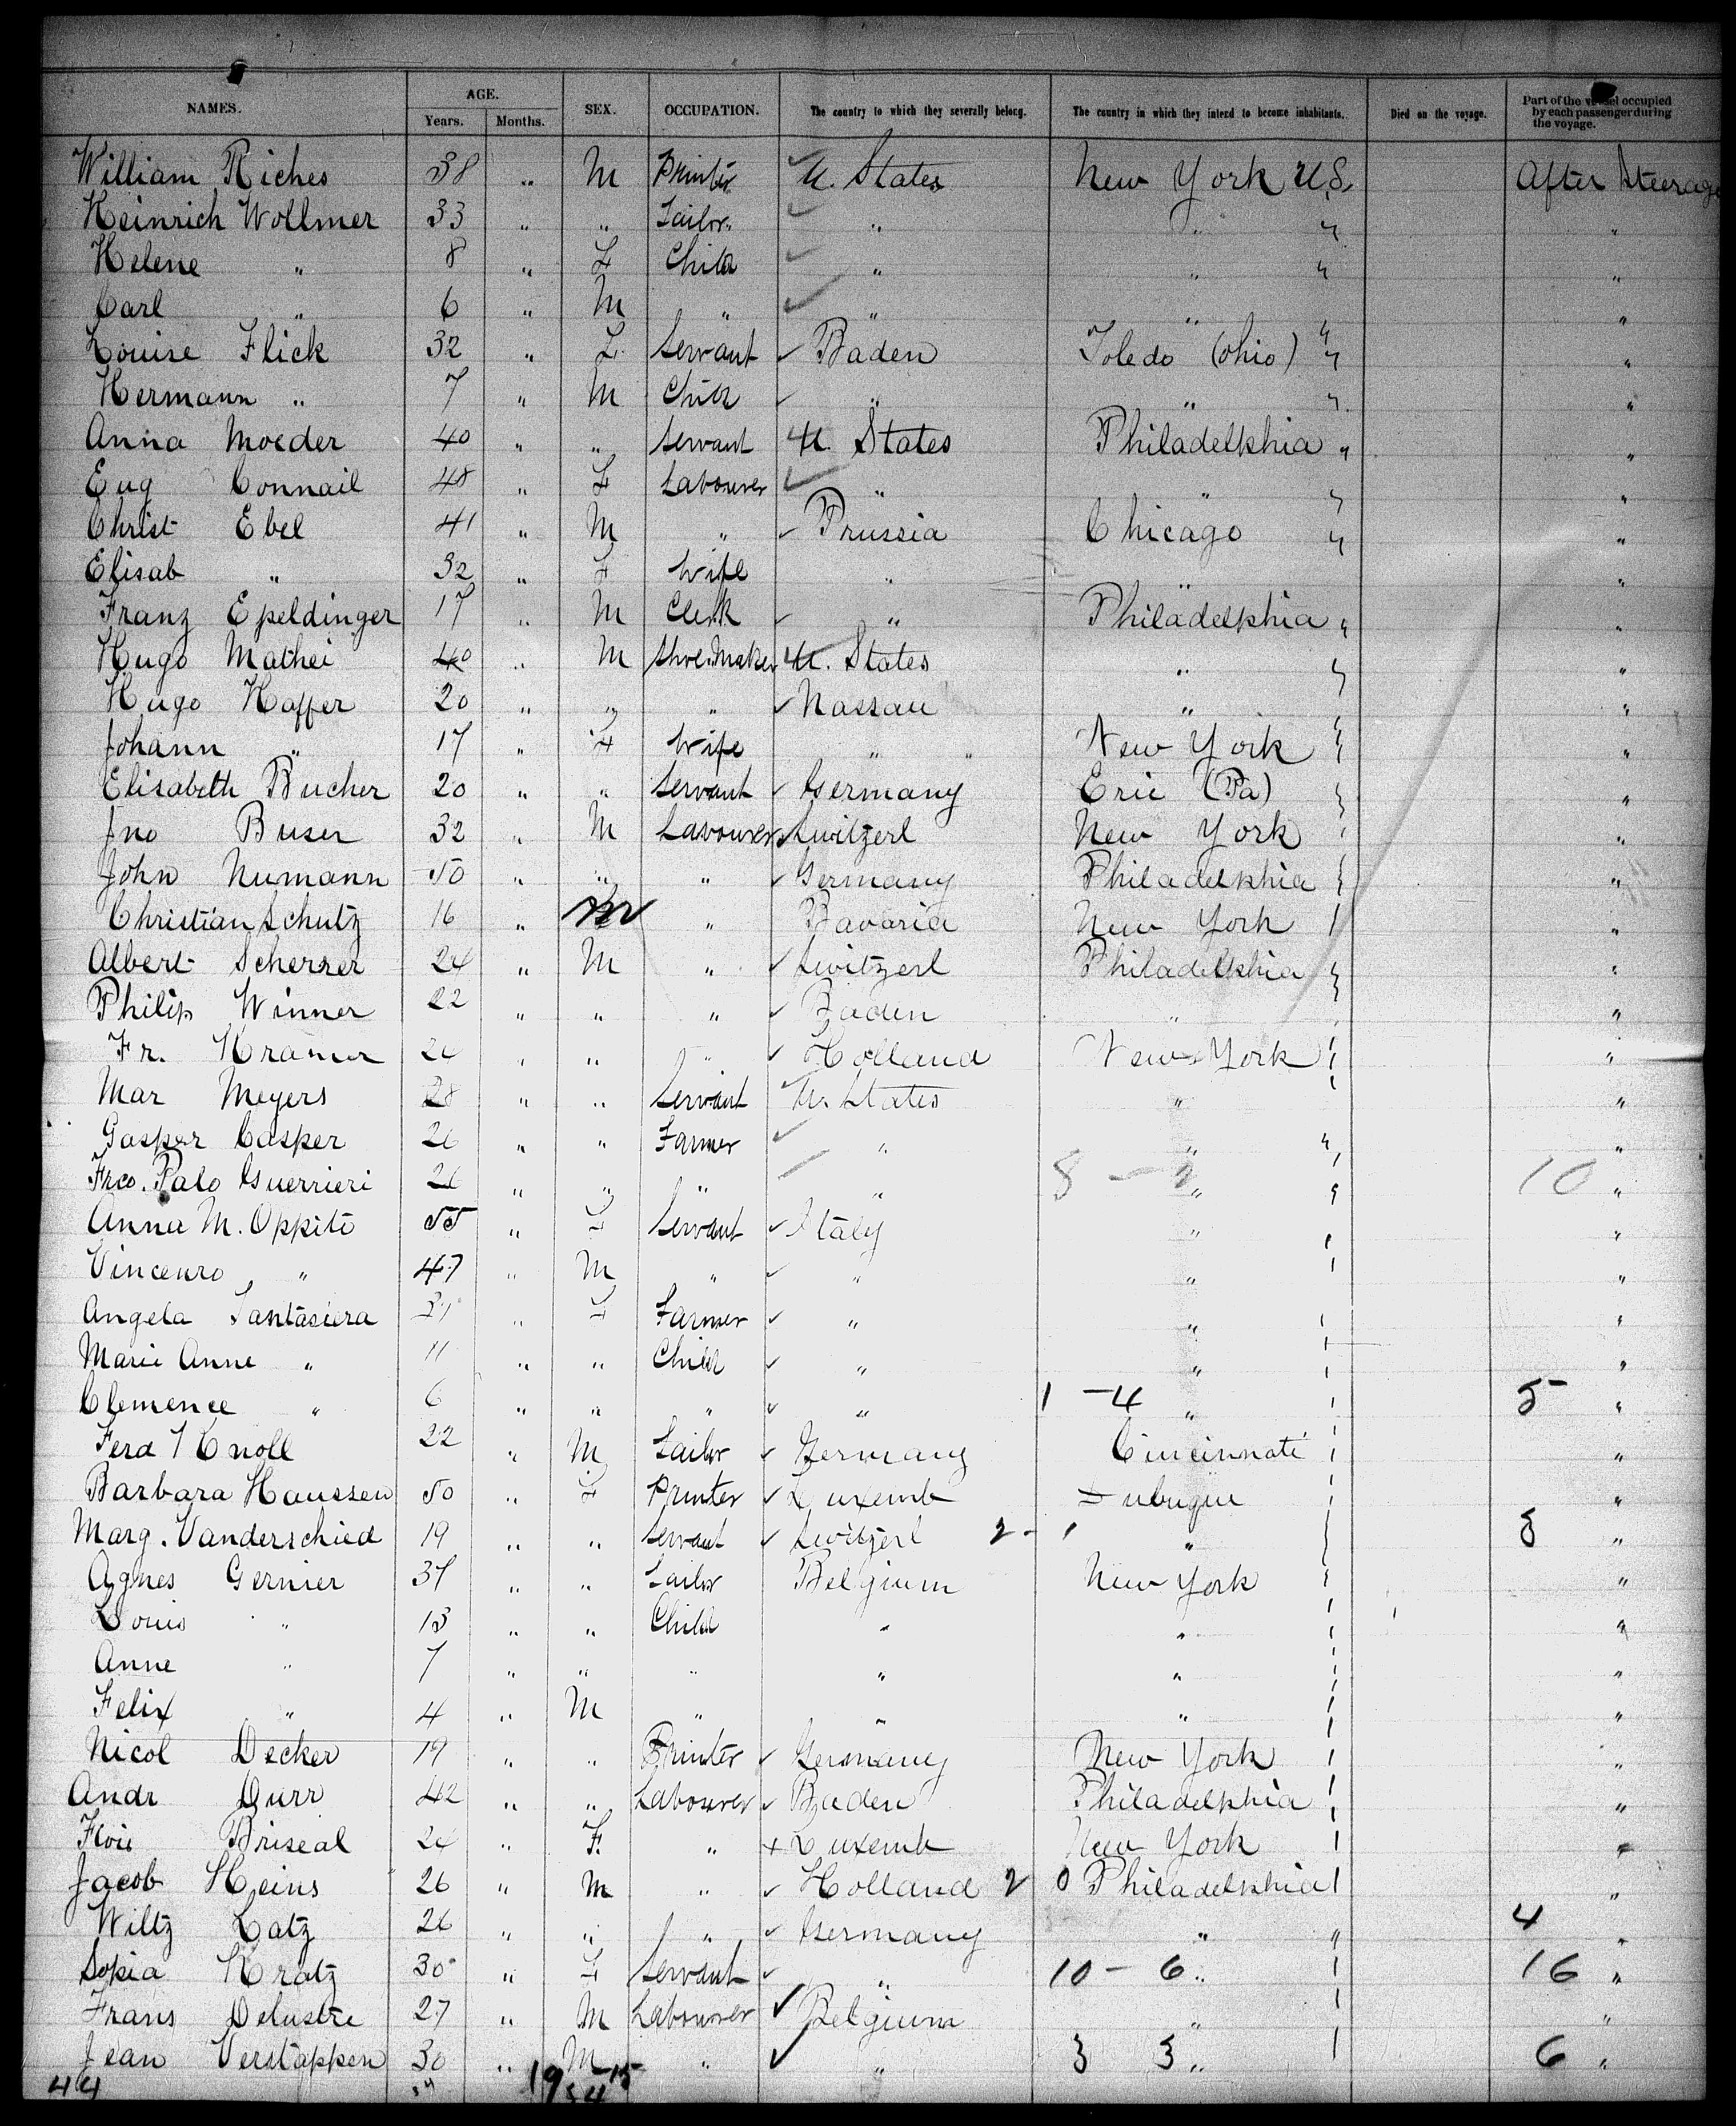 NAMES. AGE. Years. Months. SEX. OCCUPATION. The country to which they severally belong. The country in which they intend to become inhabitants. Died on the voyage. Part of the vessel occupied by each passenger during the voyage.
William Riches 38 " M Printer U. States New York U.S. After Steerage
Heinrich Wollmer 33 " " Tailor " " " "
Helene " 8 " F Child " " " "
Carl " 6 " M " " " " "
Louise Flick 32 " F Servant Baden Toledo (Ohio) " "
Hermann " 7 " M Child " " " "
Anna Moeder 40 " " Servant U. States Philadelphia " "
Eug Connail 48 " F Labourer " " " "
Christ Ebel 41 " M " Prussia Chicago " "
Elisab " 32 " F Wife " " "
Franz Epeldinger 17 " M Clerk " Philadelphia " "
Hugo Mathei 40 " M Shoe Maker U. States " " "
Hugo Haffer 20 " " " Nassau " "
Johann " 17 " F Wife " " New York " "
Elisabeth Bucher 20 " " Servant Germany Erie (Pa) " "
Jno Buser 32 " M Labourer Switzerl New York "
John Numann 50 " " " Germany Philadelphia "
Christian Schutz 16 " M " Bavaria New York "
Albert Scherrer 24 " M " Switzerl Philadelphia "
Philip Winner 22 " " " Baden " "
Fr. Kramer " " " Holland New York "
Mar Meyers 28 " " Servant U. States " "
Gasper Casper 26 " " Farmer " " " "
Frco. Palo Guerrieri " " " " 8 - 2 " " 10 "
Anna M. Oppiti 55 " F Servant Italy " "
Vincenro " 47 " M " " " "
Angela Santasiera " F Farmer " " "
Marie Anne " 11 " " Child " " "
Clemence " 6 " " " " 1 - 4 " 5 - "
Ferd Knoll 22 " M Tailor Germany Cincinnati "
Barbara Haussen 50 " F Printer Luxemb Dubuque "
Marg. Vanderschied 19 " " Servant Switzerl 2 - 1 " 3 "
Agnes Gernier 37 " " Tailor Belgium New York "
Louis " 13 " " Child " " "
Anne " 7 " " " " " "
Felix " 4 " M " " " "
Nicol Decker 19 " " Printer Germany New York "
Andr Durr 42 " " Labourer Baden Philadelphia "
Briseal " F. " Luxemb New York "
Jacob Heins 26 " M " Holland 2 0 Philadelphia "
Wiltz Latz 26 " " " Germany " " 4 "
Sopia Kratz 30 " F Servant " 10 - 6 " 16 "
Frans Delustre 27 " M Labourer Belgium " "
Jean Verstappen 30 " M " " 3 3 " 6 "
44 19 15